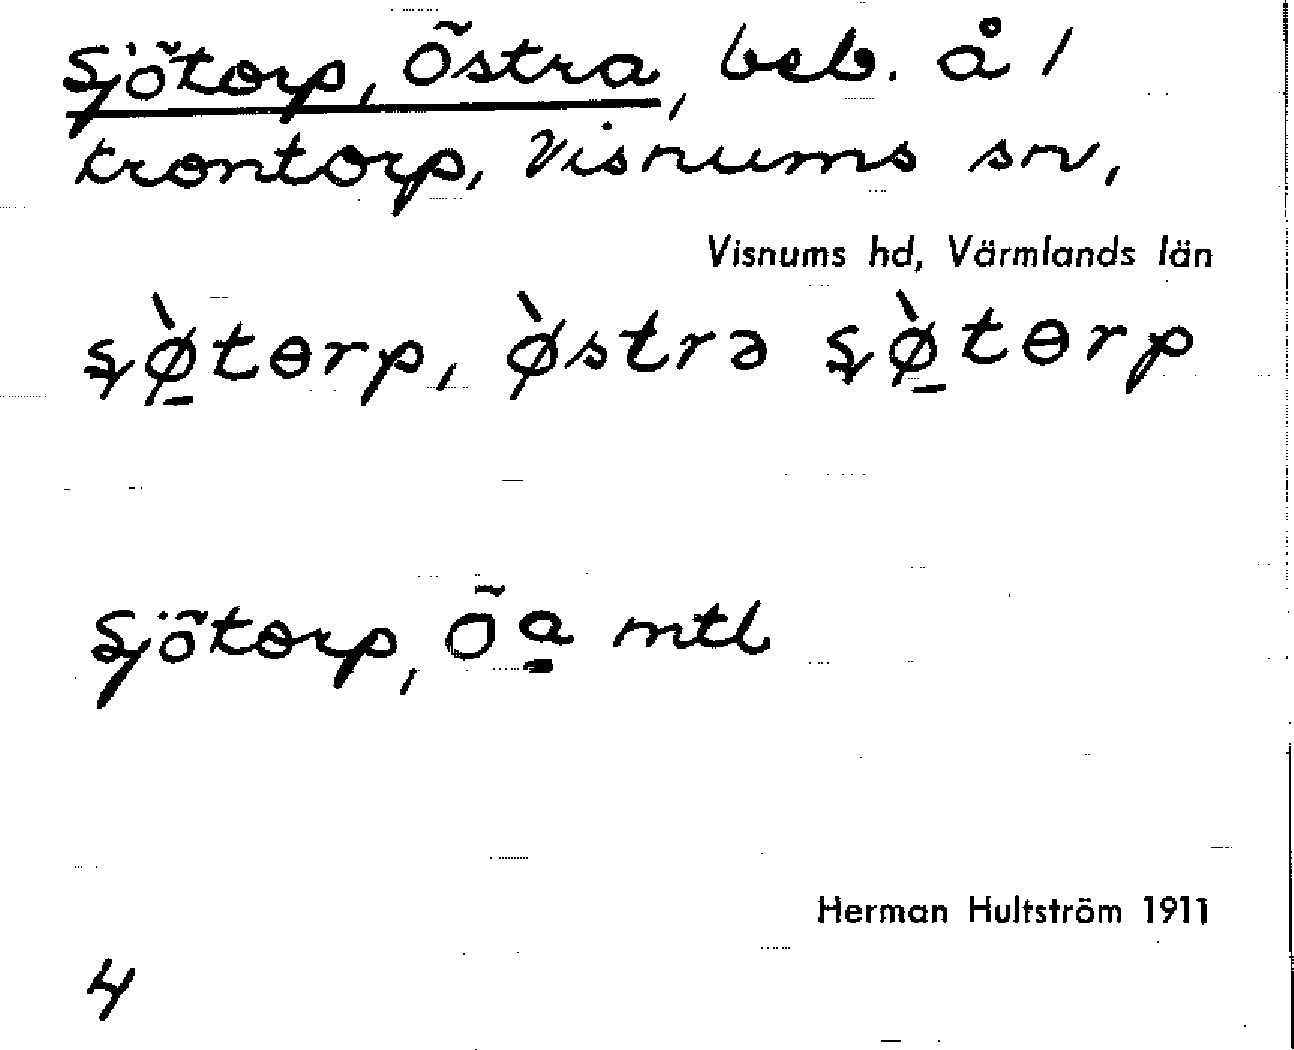 Sjötorp, Östra, beb. å 1
trontorp, Visnums sn,
Visnums hd, Värmlands län
Sjötorp, Öa mtl
Herman Hultström 1911
4